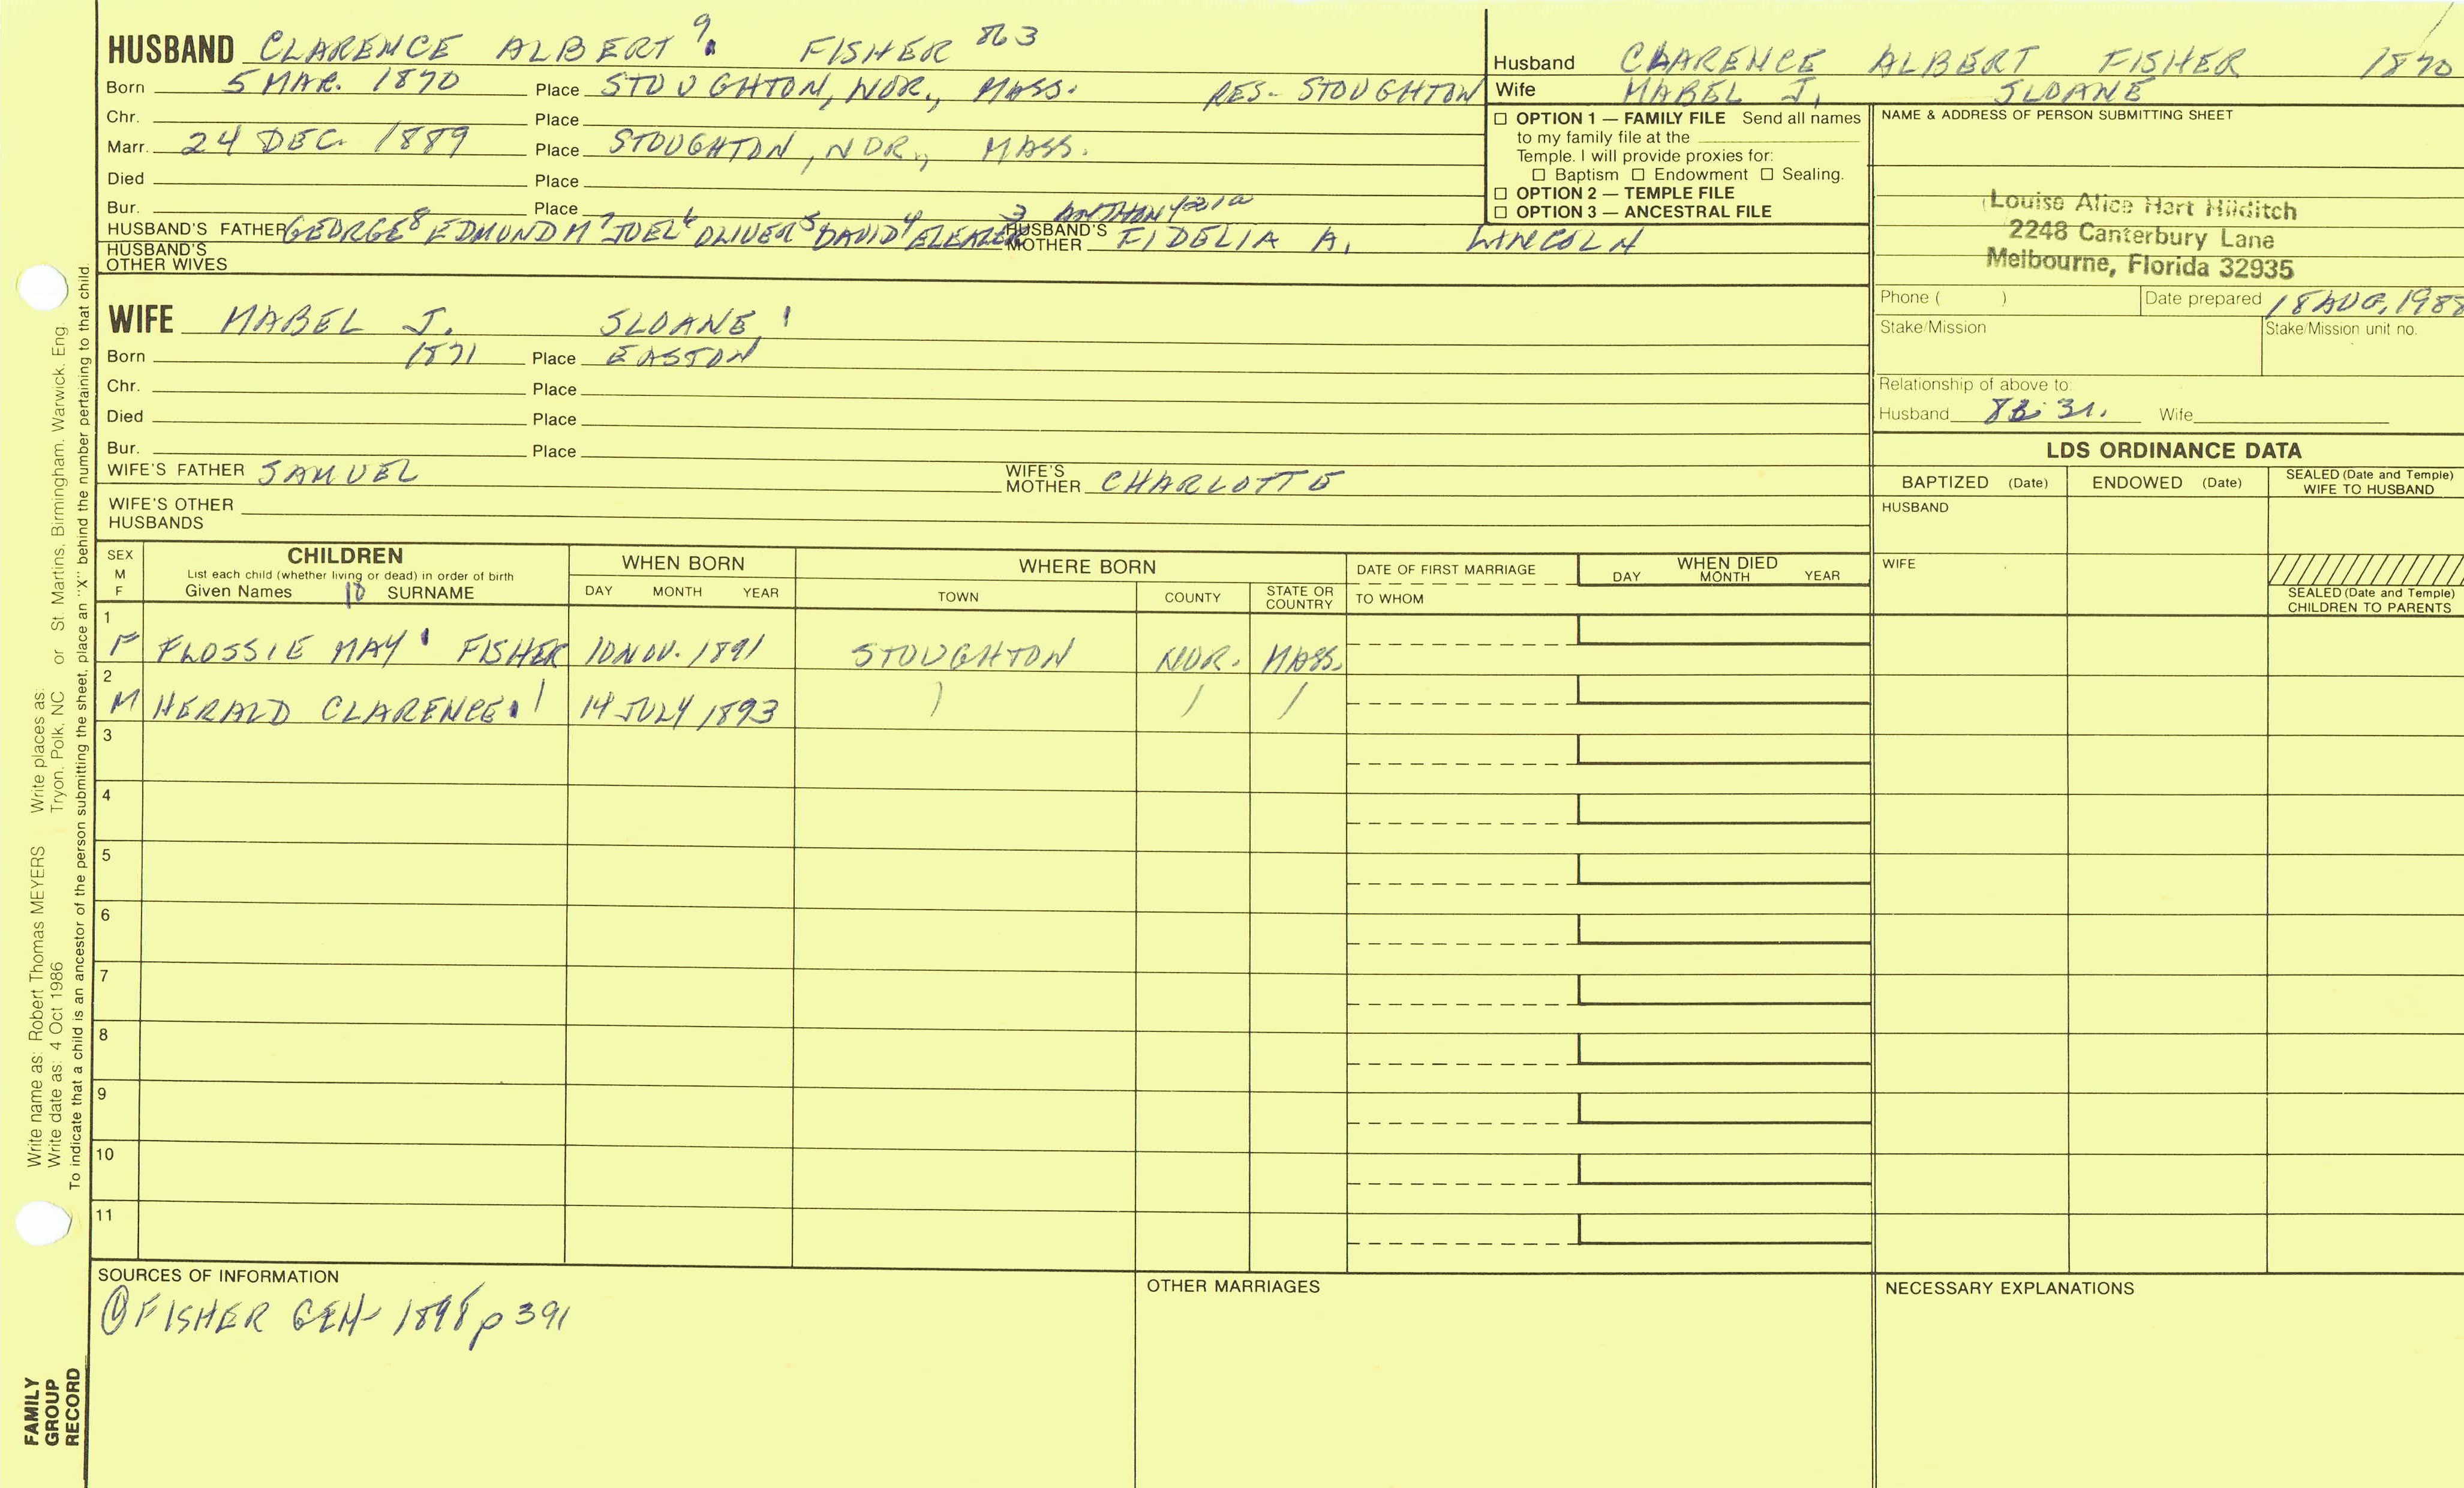 HUSBAND CLARENCE ALBERT 9. FISHER 863
Born 5 MAR. 1870 Place STOUGHTON, NOR., MASS. RES- STOUGHTON
Chr. Place
Marr. 24 DEC. 1889 Place STOUGHTON, NOR., MASS.
Died Place
Bur. Place
HUSBAND'S FATHER GEORGE8 EDMUND M7 JOEL6 OLIVER5 DAVID4 ELEAZER 3 ANTHONY 2 1 HUSBAND'S MOTHER FIDELIA A. LINCOLN
HUSBAND'S OTHER WIVES
WIFE MABEL J. SLOANE 1
Born 1871 Place EASTON
Chr. Place
Died Place
Bur. Place
WIFE'S FATHER SAMUEL WIFE'S MOTHER CHARLOTTE
WIFE'S OTHER HUSBANDS
Husband CLARENCE ALBERT FISHER 1870
Wife MABEL J. SLOANE
☐ OPTION 1 — FAMILY FILE Send all names
to my family file at the
Temple. I will provide proxies for:
☐ Baptism ☐ Endowment ☐ Sealing.
☐ OPTION 2 — TEMPLE FILE
☐ OPTION 3 — ANCESTRAL FILE
NAME & ADDRESS OF PERSON SUBMITTING SHEET
Louise Alice Hart Hilditch
2248 Canterbury Lane
Melbourne, Florida 32935
Phone ( ) Date prepared 18 AUG, 1988
Stake/Mission Stake/Mission unit no.
Relationship of above to:
Husband Wife
LDS ORDINANCE DATA
BAPTIZED (Date) ENDOWED (Date) SEALED (Date and Temple) WIFE TO HUSBAND
HUSBAND
WIFE
SEALED (Date and Temple) CHILDREN TO PARENTS
SEX M F CHILDREN WHEN BORN WHERE BORN DATE OF FIRST MARRIAGE WHEN DIED
List each child (whether living or dead) in order of birth
Given Names 10 SURNAME DAY MONTH YEAR TOWN COUNTY STATE OR COUNTRY TO WHOM DAY MONTH YEAR
1 F FLOSSIE MAY 1 FISHER 10 NOV. 1891 STOUGHTON NOR. MASS.
2 M HERALD CLARENCE 1 14 JULY 1893
3
4
5
6
7
8
9
10
11
SOURCES OF INFORMATION
① FISHER GEN 1898 p 391
OTHER MARRIAGES
NECESSARY EXPLANATIONS
Write name as: Robert Thomas MEYERS Write places as: St. Martins, Birmingham, Warwick, Eng
Write date as: 4 Oct 1986 Tryon, Polk, NC or
To indicate that a child is an ancestor of the person submitting the sheet, place an "X" behind the number pertaining to that child.
FAMILY
GROUP
RECORD